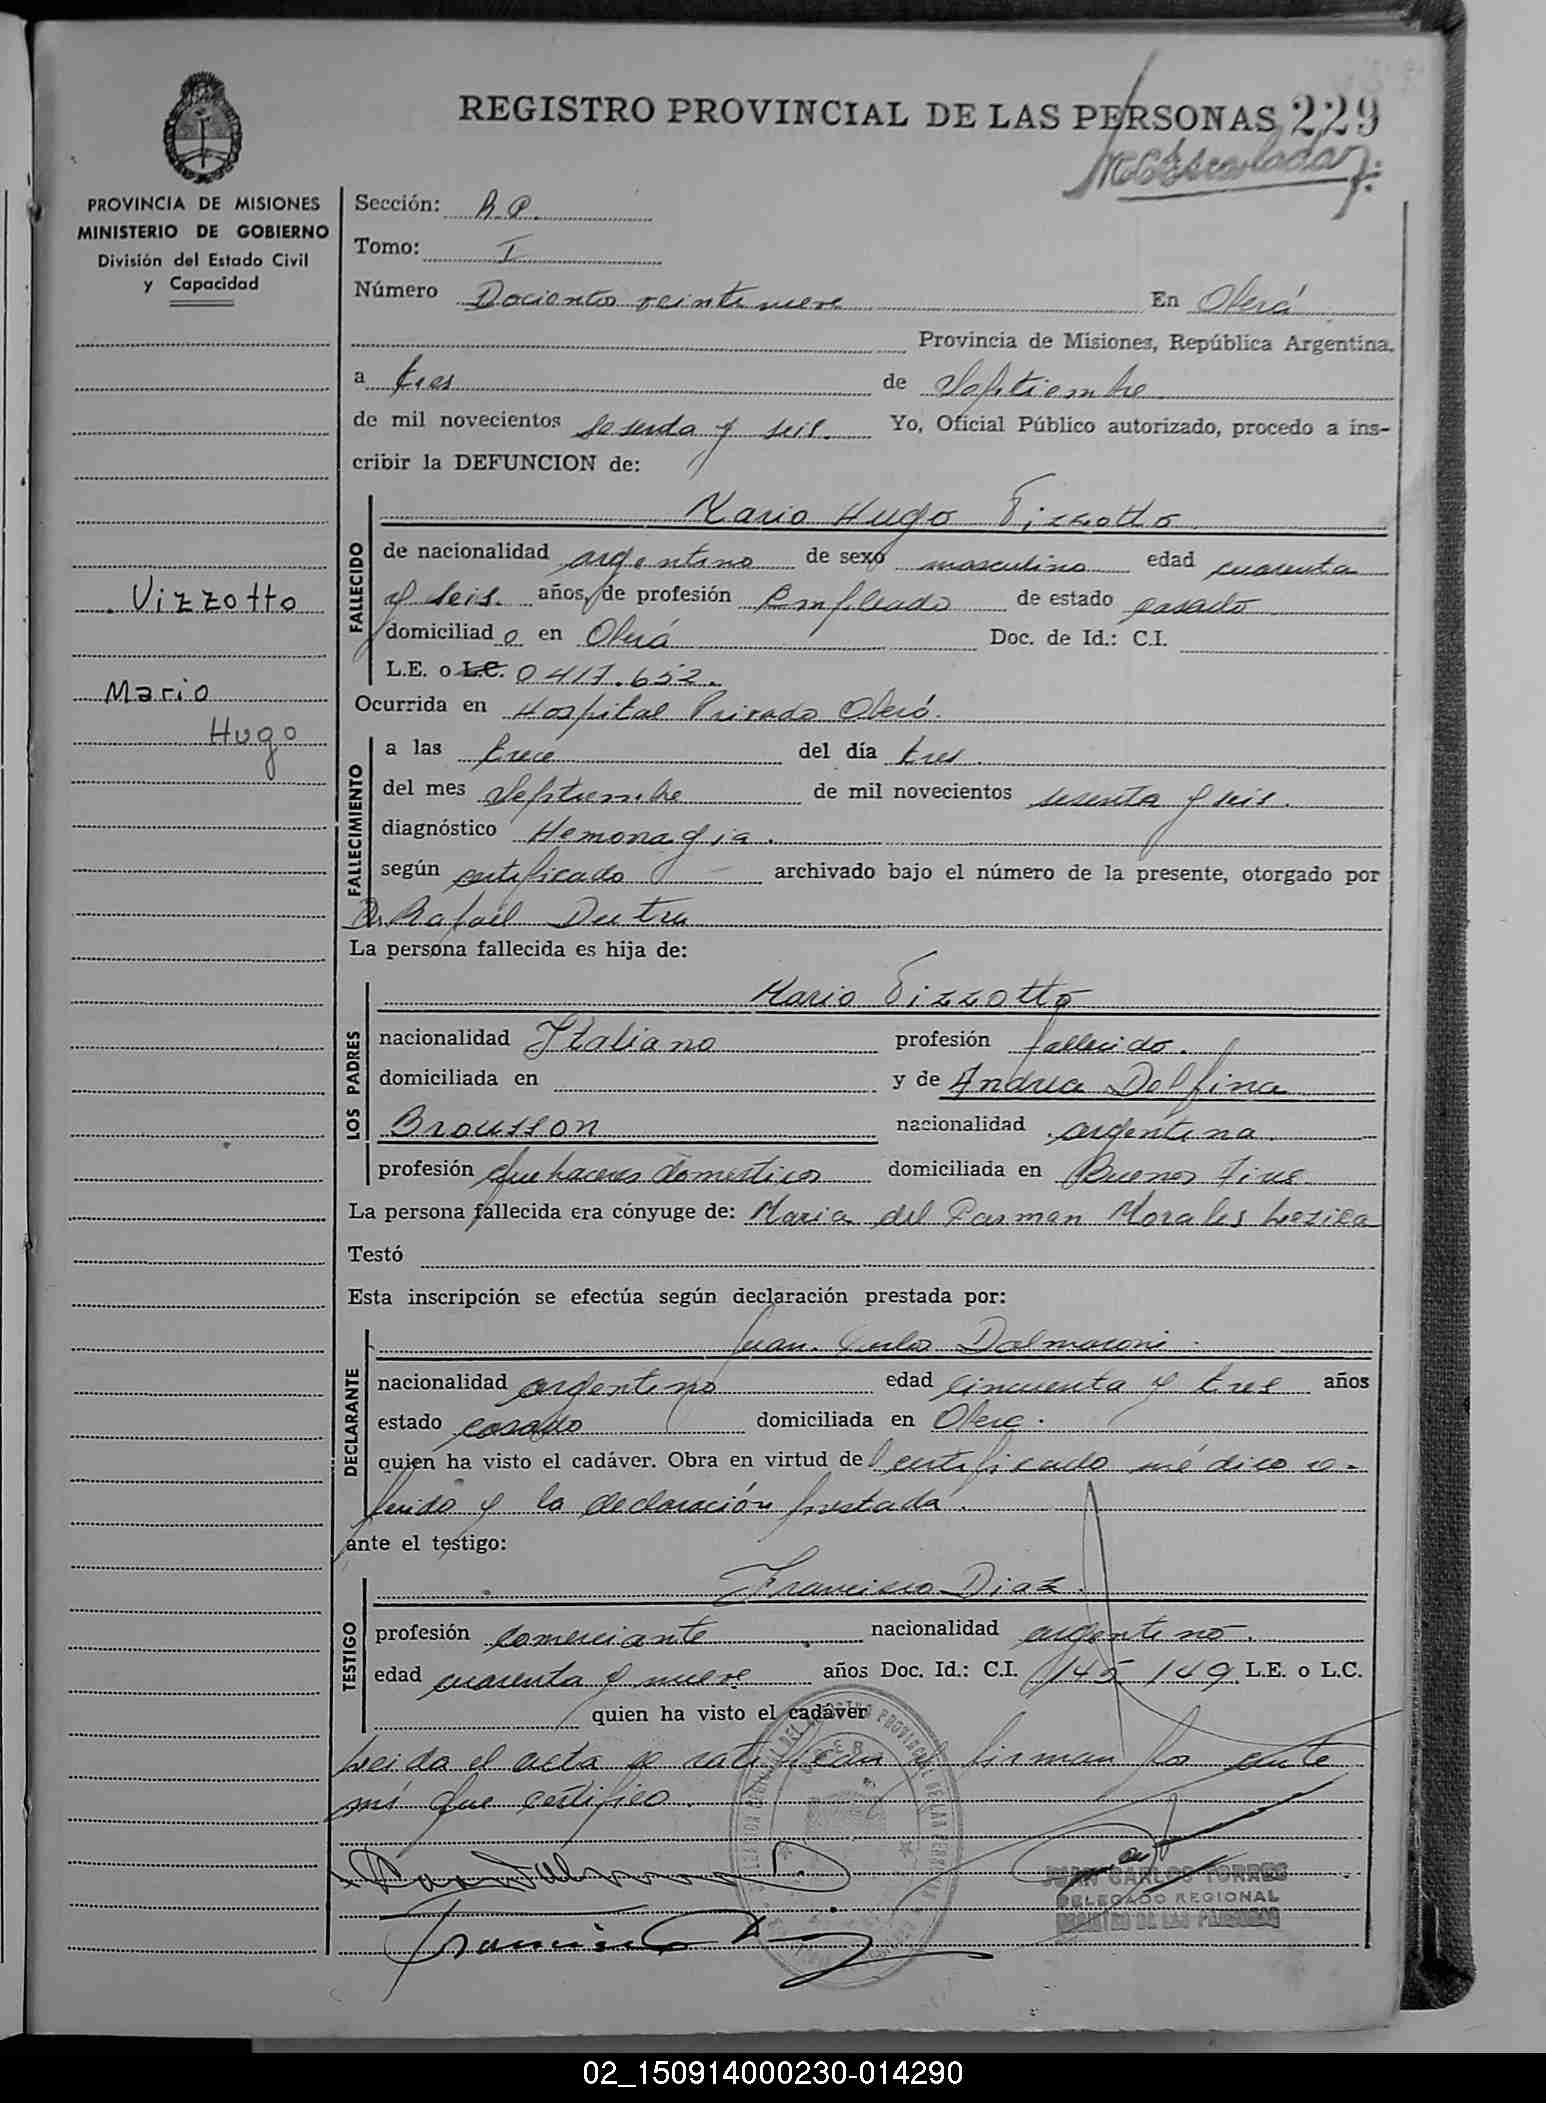 REGISTRO PROVINCIAL DE LAS PERSONAS 229
PROVINCIA DE MISIONES
MINISTERIO DE GOBIERNO
División del Estado Civil
y Capacidad
Vizzotto
Mario
Hugo
Sección:
Tomo: I
Número Dociento veintinueve En Oberá
Provincia de Misiones, República Argentina.
a tres de Septiembre
de mil novecientos sesenta y seis. Yo, Oficial Público autorizado, procedo a ins-
cribir la DEFUNCION de:
FALLECIDO
Mario Hugo Vizzotto
de nacionalidad argentino de sexo masculino edad cuarenta
y seis. años, de profesión Empleado de estado casado
domiciliad o en Oberá Doc. de Id.: C.I.
L.E. o L.C. 0417.652.
Ocurrida en Hospital Privado Oberá.
FALLECIMIENTO
a las trece del día tres.
del mes Septiembre de mil novecientos sesenta y seis.
diagnóstico Hemoragia.
según certificado archivado bajo el número de la presente, otorgado por
Dr. Rafael Dutra
La persona fallecida es hija de:
LOS PADRES
Mario Vizzotto
nacionalidad Italiano profesión fallecido.
domiciliada en y de Andrea Delfina
Brousson nacionalidad argentina.
profesión quehaceres domestico domiciliada en Buenos Aires.
La persona fallecida era cónyuge de: Maria del Carmen Morales Lezica
Testó
Esta inscripción se efectúa según declaración prestada por:
DECLARANTE
Juan Carlos Dalmaroni.
nacionalidad argentino edad cincuenta y tres años
estado casado domiciliada en Oberá.
quien ha visto el cadáver. Obra en virtud de certificado médico re-
ferido y la declaración prestada.
ante el testigo:
TESTIGO
Francisco Diaz.
profesión comerciante nacionalidad argentino.
edad cuarenta y nueve años Doc. Id.: C.I. 145.149 L.E. o L.C.
quien ha visto el cadáver
Leida el acta se ratifican y firman por ante
mi que certifico.
JUAN CARLOS TORRES
DELEGADO REGIONAL
REGISTRO DE LAS PERSONAS
Francisco
02_150914000230-014290